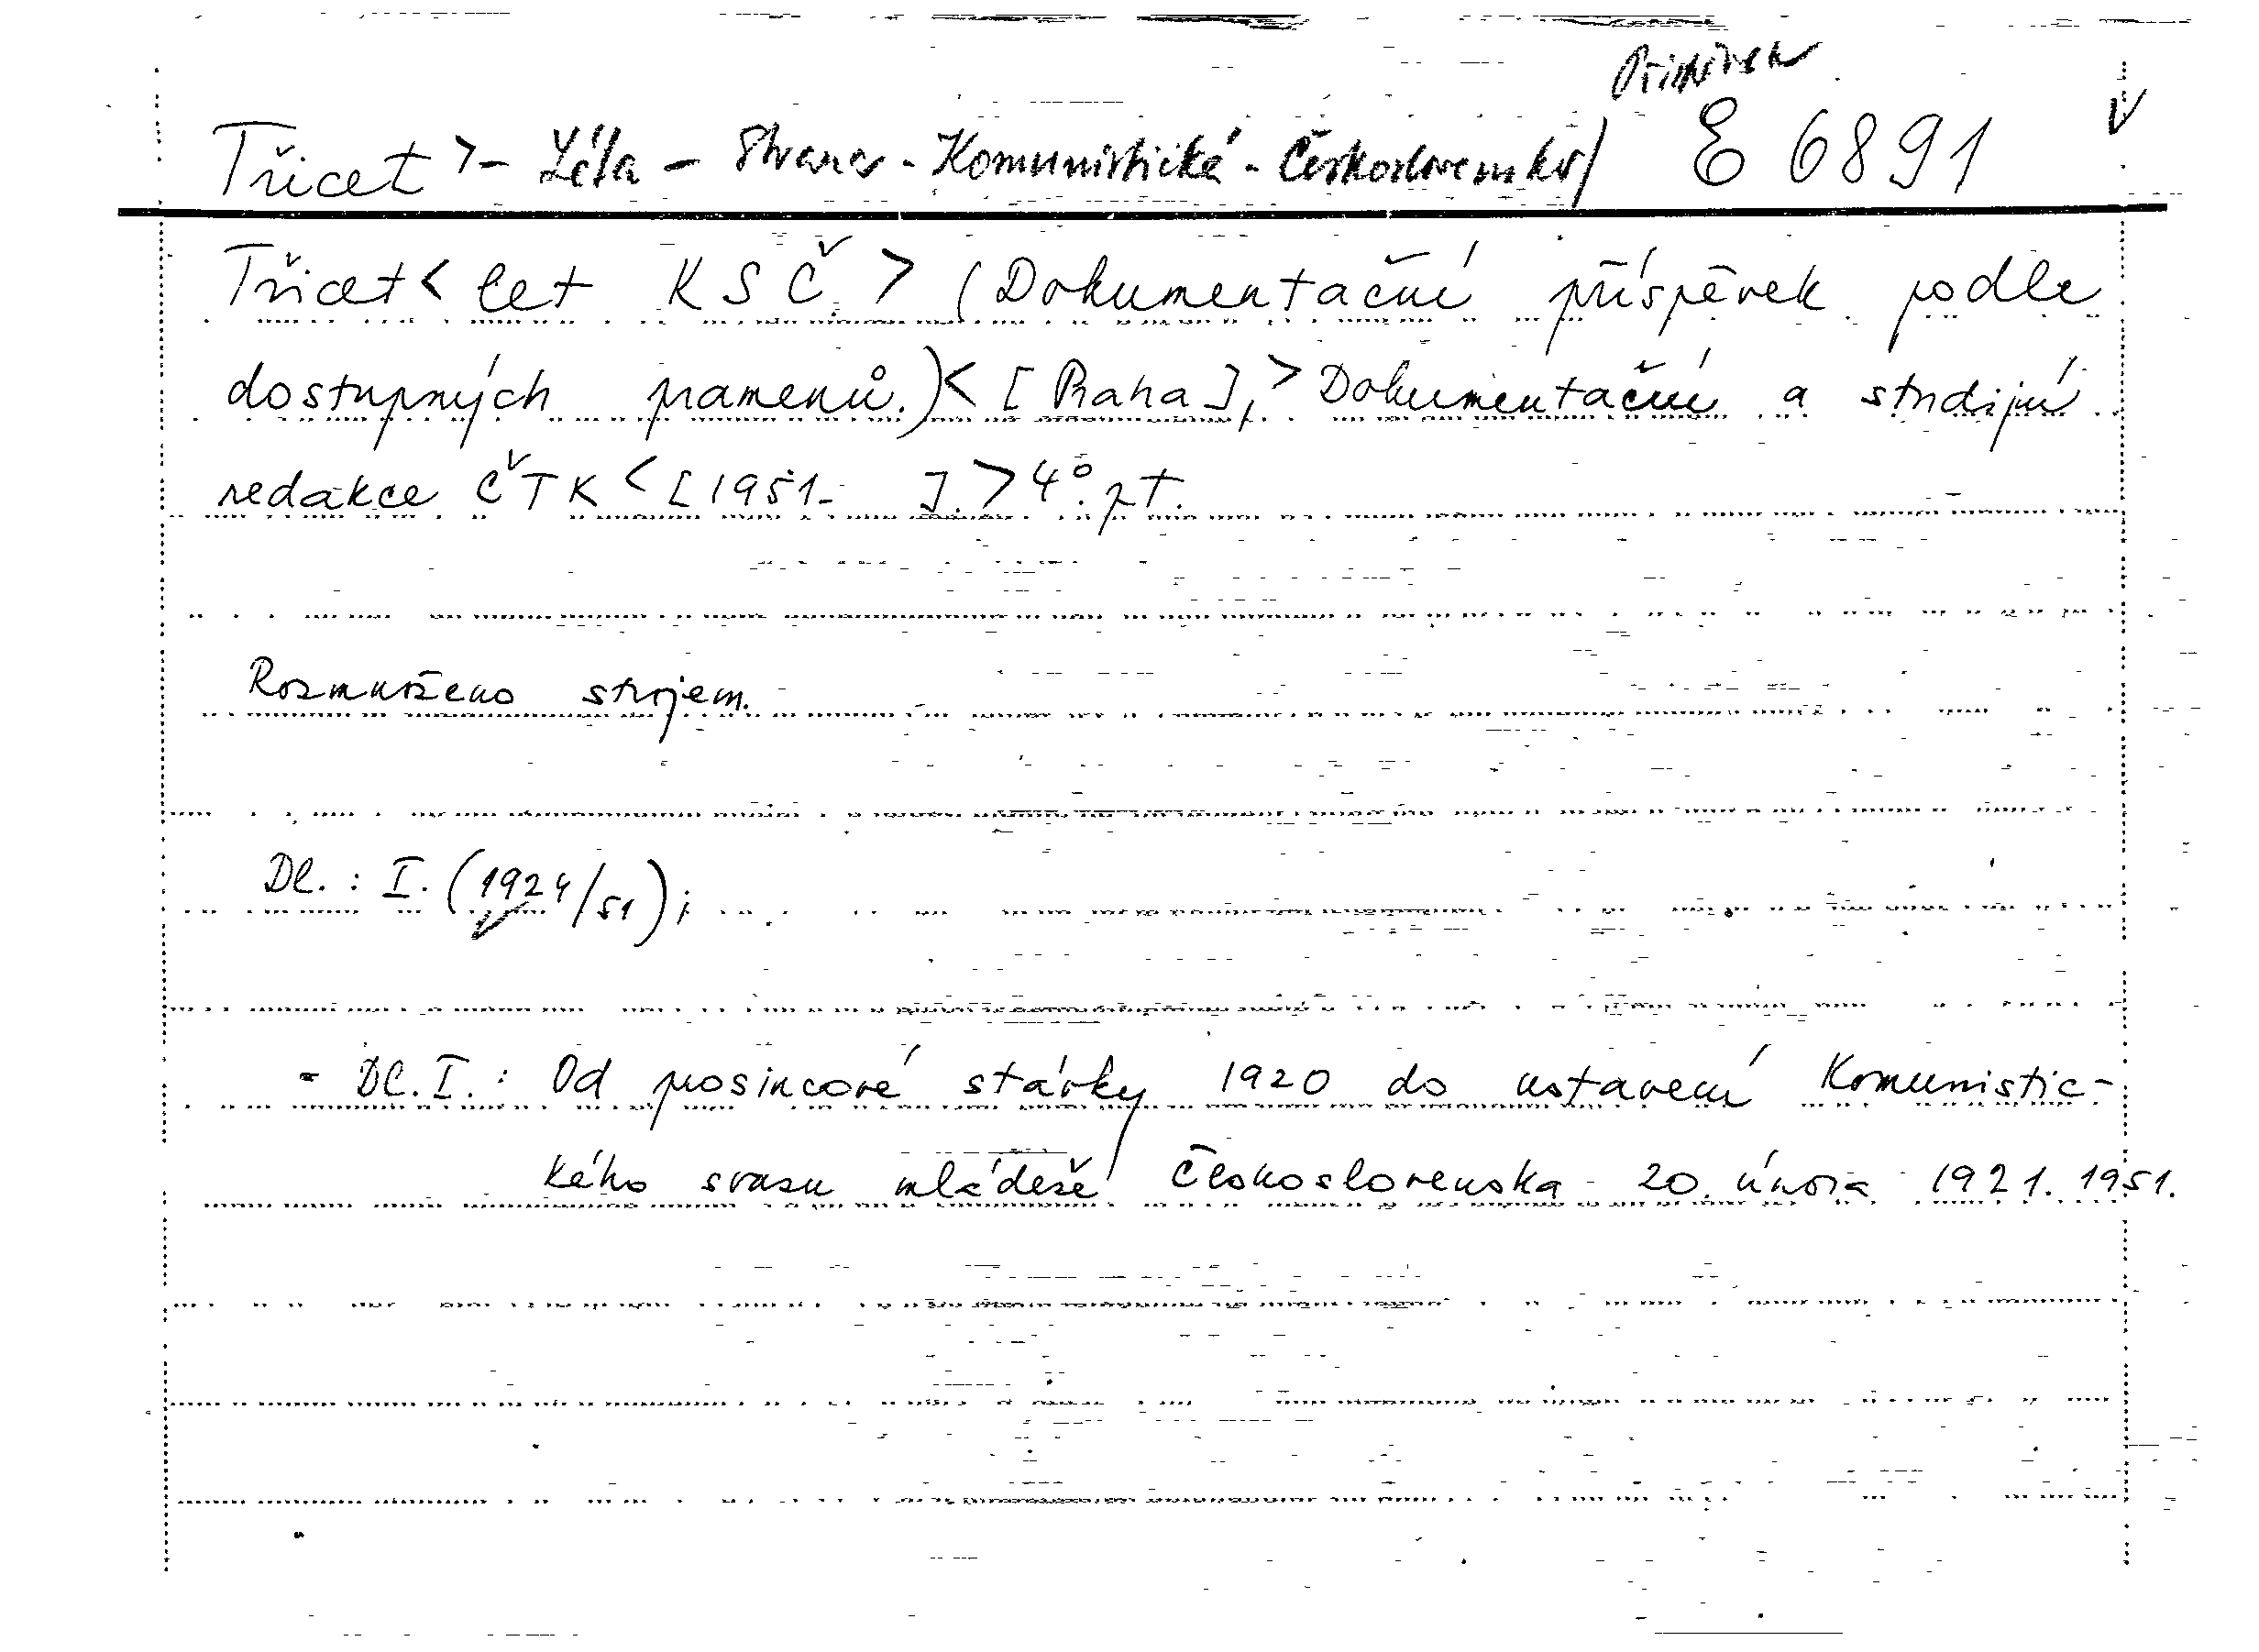 Třicet > - Léta - Strana - Komunistická - Československa/ E 6891 v
Třicet < let KSČ. > (Dokumentační příspěvek podle
dostupných pramenů.) < [Praha], > Dokumentační a studijní
redakce ČTK < [1951- ]. > 4°. pt.
Rozmnoženo strojem.
Dl. : I. (1924/51);
- Dl. I. : Od prosincové stávky 1920 do ustavení Komunistic-
kého svazu mládeže Československa 20. února 1921. 1951.